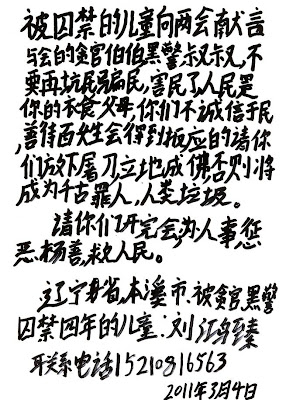 被囚禁的儿童向两会献言
与会的贪官伯伯黑警叔叔,不
要再坑民骗民,害民了人民是
你的衣食父母,你们不诚信于民
,善待百姓会得到报应的请你
们放下屠刀立地成佛否则将
成为千古罪人,人类垃圾。
请你们开完会,为人事惩
恶、杨善,救人民。
辽宁省,本溪市.被贪官黑警
囚禁四年的儿童:刘
耳关系电话15210816563
2011年3月4日